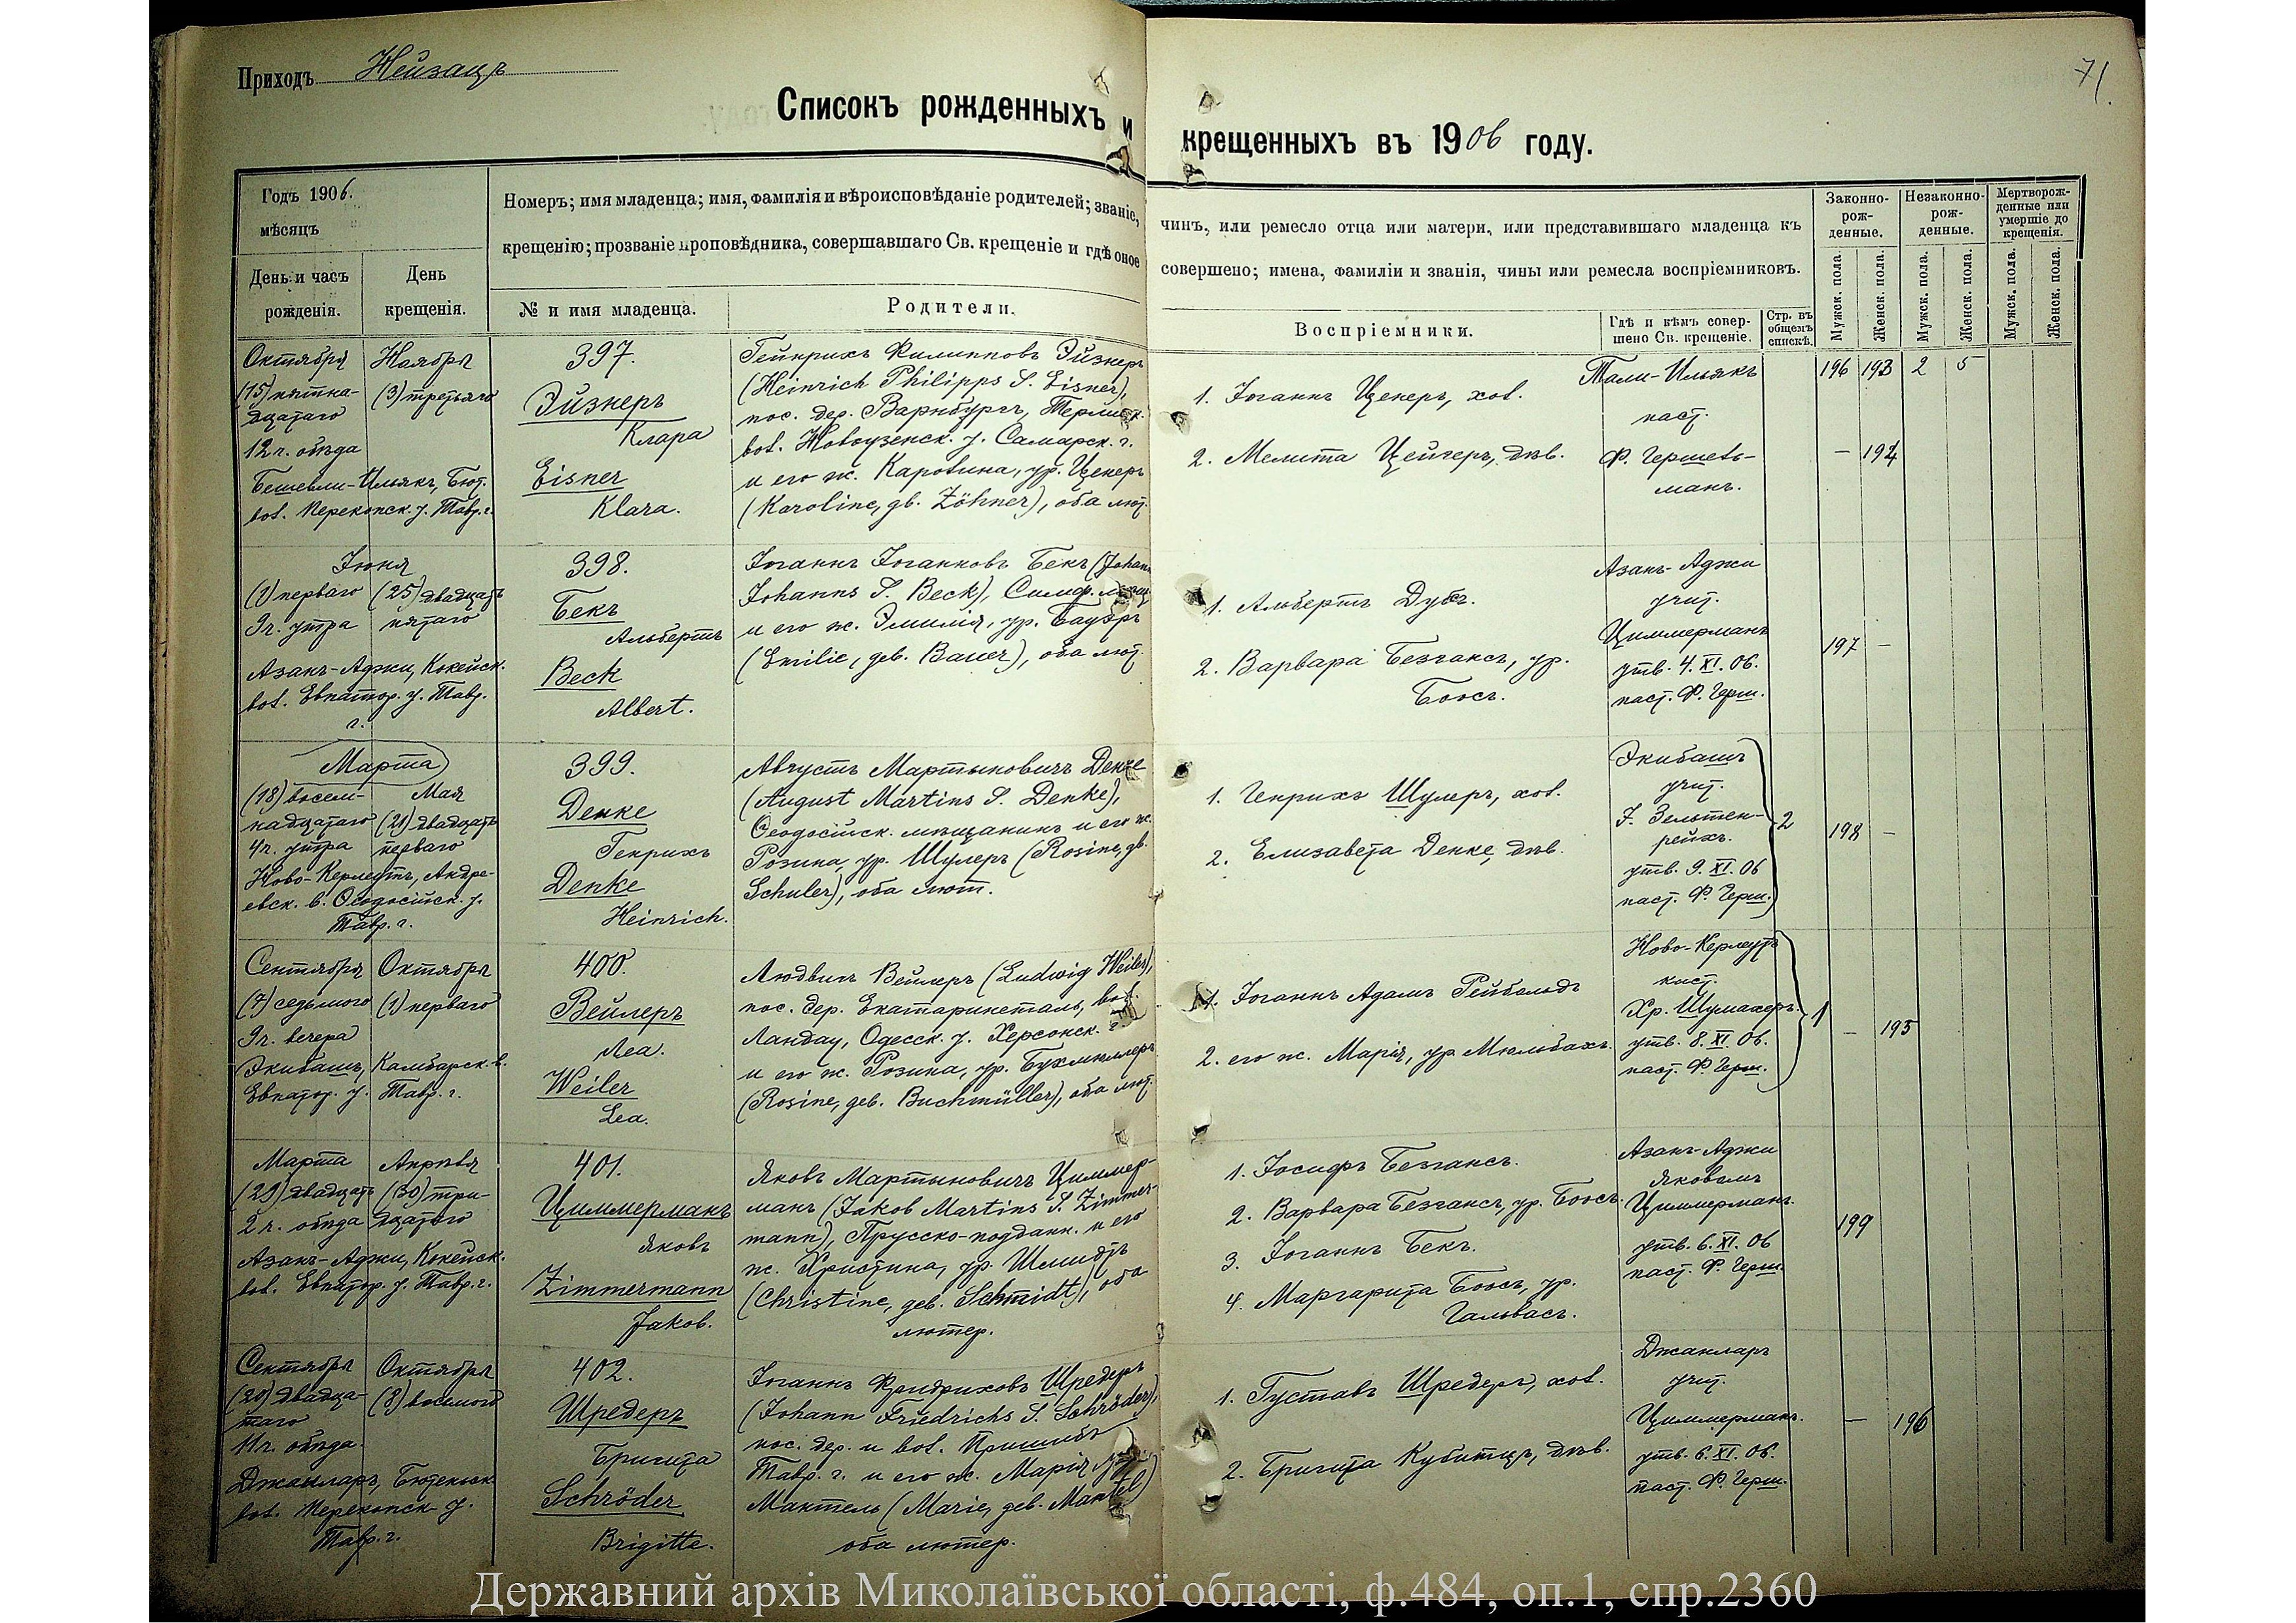 Приходъ Нейзацъ
71.
Списокъ рожденныхъ и крещенныхъ въ 1906 году.
Годъ 1906.
мѣсяцъ
День и часъ рожденія.
День крещенія.
Номеръ; имя младенца; имя, фамилія и вѣроисповѣданіе родителей; званіе, чинъ, или ремесло отца или матери, или представившаго младенца къ
крещенію; прозваніе проповѣдника, совершавшаго Св. крещеніе и гдѣ оное совершено; имена, фамиліи и званія, чины или ремесла воспріемниковъ.
№ и имя младенца.
Родители.
Воспріемники.
Гдѣ и кѣмъ совер-
шено Св. крещеніе.
Стр. въ
общемъ
спискѣ.
Законно-
рож-
денные.
Незаконно-
рож-
денные.
Мертворож-
денные или
умершіе до
крещенія.
Мужск. пола.
Женск. пола.
Мужск. пола.
Женск. пола.
Мужск. пола.
Женск. пола.
Октября
(15) пятна-
дцатаго
12 ч. обѣда
Ноября
(3) третьяго
Бешевли-Ильякъ, Бют.
вол. Перекопск. у. Тавр. г.
397.
Эйзнеръ
Клара
Eisner
Klara.
Гейнрихъ Филипповъ Эйзнеръ
(Heinrich Philipps S. Eisner),
пос. дер. Варнбургъ,
вол. Новоузенск. у. Самарск. г.
и его ж. Каролина, ур. Ценеръ
(Karoline, gb. Zöhner), оба лют.
1. Іоганнъ Ценеръ, хол.
2. Мелита Цейгеръ, дѣв.
Тали-Ильякъ
паст.
Ф. Гершель-
манъ.
196 193 2 5
- 194
Іюня
(1) перваго
9 ч. утра
(25) двадцать
пятаго
Азакъ-Аджи, Кокейск.
вол. Евпатор. у. Тавр.
г.
398.
Бекъ
Альбертъ
Beck
Albert.
Іоганнъ Іоганновъ Бекъ (Johann
Johanns S. Beck), Симф.
и его ж. Эмилія, ур. Бауэръ
(Emilie, geb. Bauer), оба лют.
1. Альбертъ Дубсъ.
2. Варвара Безгансъ, ур.
Боосъ.
Азакъ-Аджи
учит.
Циммерманъ
утв. 4. XI. 06.
паст. Ф. Герш.
197 -
Марта
(18) восем-
надцатаго
4 ч. утра
Мая
(21) двадцать
перваго
Ново-Керлеутъ, Андре-
евск. в. Ѳеодосійск. у.
Тавр. г.
399.
Денке
Генрихъ
Denke
Heinrich.
Августъ Мартыновичъ Денке
(August Martins S. Denke),
Ѳеодосійск. мѣщанинъ и его ж.
Розина, ур. Шулеръ (Rosine, gb.
Schuler), оба лют.
1. Генрихъ Шулеръ, хол.
2. Елизавета Денке, дѣв.
Экибашъ
учит.
F. Зельтен-
рейхъ.
утв. 9. XI. 06
паст. Ф. Герш.
2
198 -
Сентября
(7) седьмого
9 ч. вечера
Октября
(1) перваго
Экибашъ, Камбарск. в.
Евпатор. у. Тавр. г.
400.
Вейлеръ
Леа.
Weiler
Lea.
Людвигъ Вейлеръ (Ludwig Weiler),
пос. дер. Екатариненталь, вол.
Ландау, Одесск. у. Херсонск. г.
и его ж. Розина, ур. Бухмюллеръ
(Rosine, geb. Buchmüller), оба лют.
1. Іоганнъ Адамъ Рейбольдъ
2. его ж. Марія, ур. Мюльбахъ.
Ново-Керлеутъ
кист.
Хр. Шумахеръ.
утв. 8. XI. 06.
паст. Ф. Герш.
1
- 195
Марта
(29) двадцать
2 ч. обѣда
Апрѣля
(30) три-
дцатаго
Азакъ-Аджи, Кокейск.
вол. Евпатор. у. Тавр. г.
401.
Циммерманъ
Яковъ
Zimmermann
Jakob.
Яковъ Мартыновичъ Циммер-
манъ (Jakob Martins S. Zimmer-
mann), Прусско-поддан. и его
ж. Христина, ур. Шмидтъ
(Christine, geb. Schmidt), оба
лютер.
1. Іосифъ Безгансъ.
2. Варвара Безгансъ, ур. Боосъ.
3. Іоганнъ Бекъ.
4. Маргарита Боосъ, ур.
Гальвасъ.
Азакъ-Аджи
Яковомъ
Циммерманъ.
утв. 6. XI. 06
паст. Ф. Герш.
199
Сентября
(20) двадца-
таго
11 ч. обѣда
Октября
(8) восьмого
Джанларъ, Бютеньск.
вол. Перекопск. у.
Тавр. г.
402.
Шредеръ
Бригита
Schröder
Brigitte.
Іоганнъ Фридриховъ Шредеръ
(Johann Friedrichs S. Schröder),
пос. дер. и вол. Пришибъ
Тавр. г. и его ж. Марія, ур.
Мантель (Marie, geb. Mantel)
оба лютер.
1. Густавъ Шредеръ, хол.
2. Бригита Кубитцъ, дѣв.
Джанларъ
учит.
Циммерманъ.
утв. 6. XI. 06.
паст. Ф. Герш.
- 196
Державний архів Миколаївської області, ф.484, оп.1, спр.2360